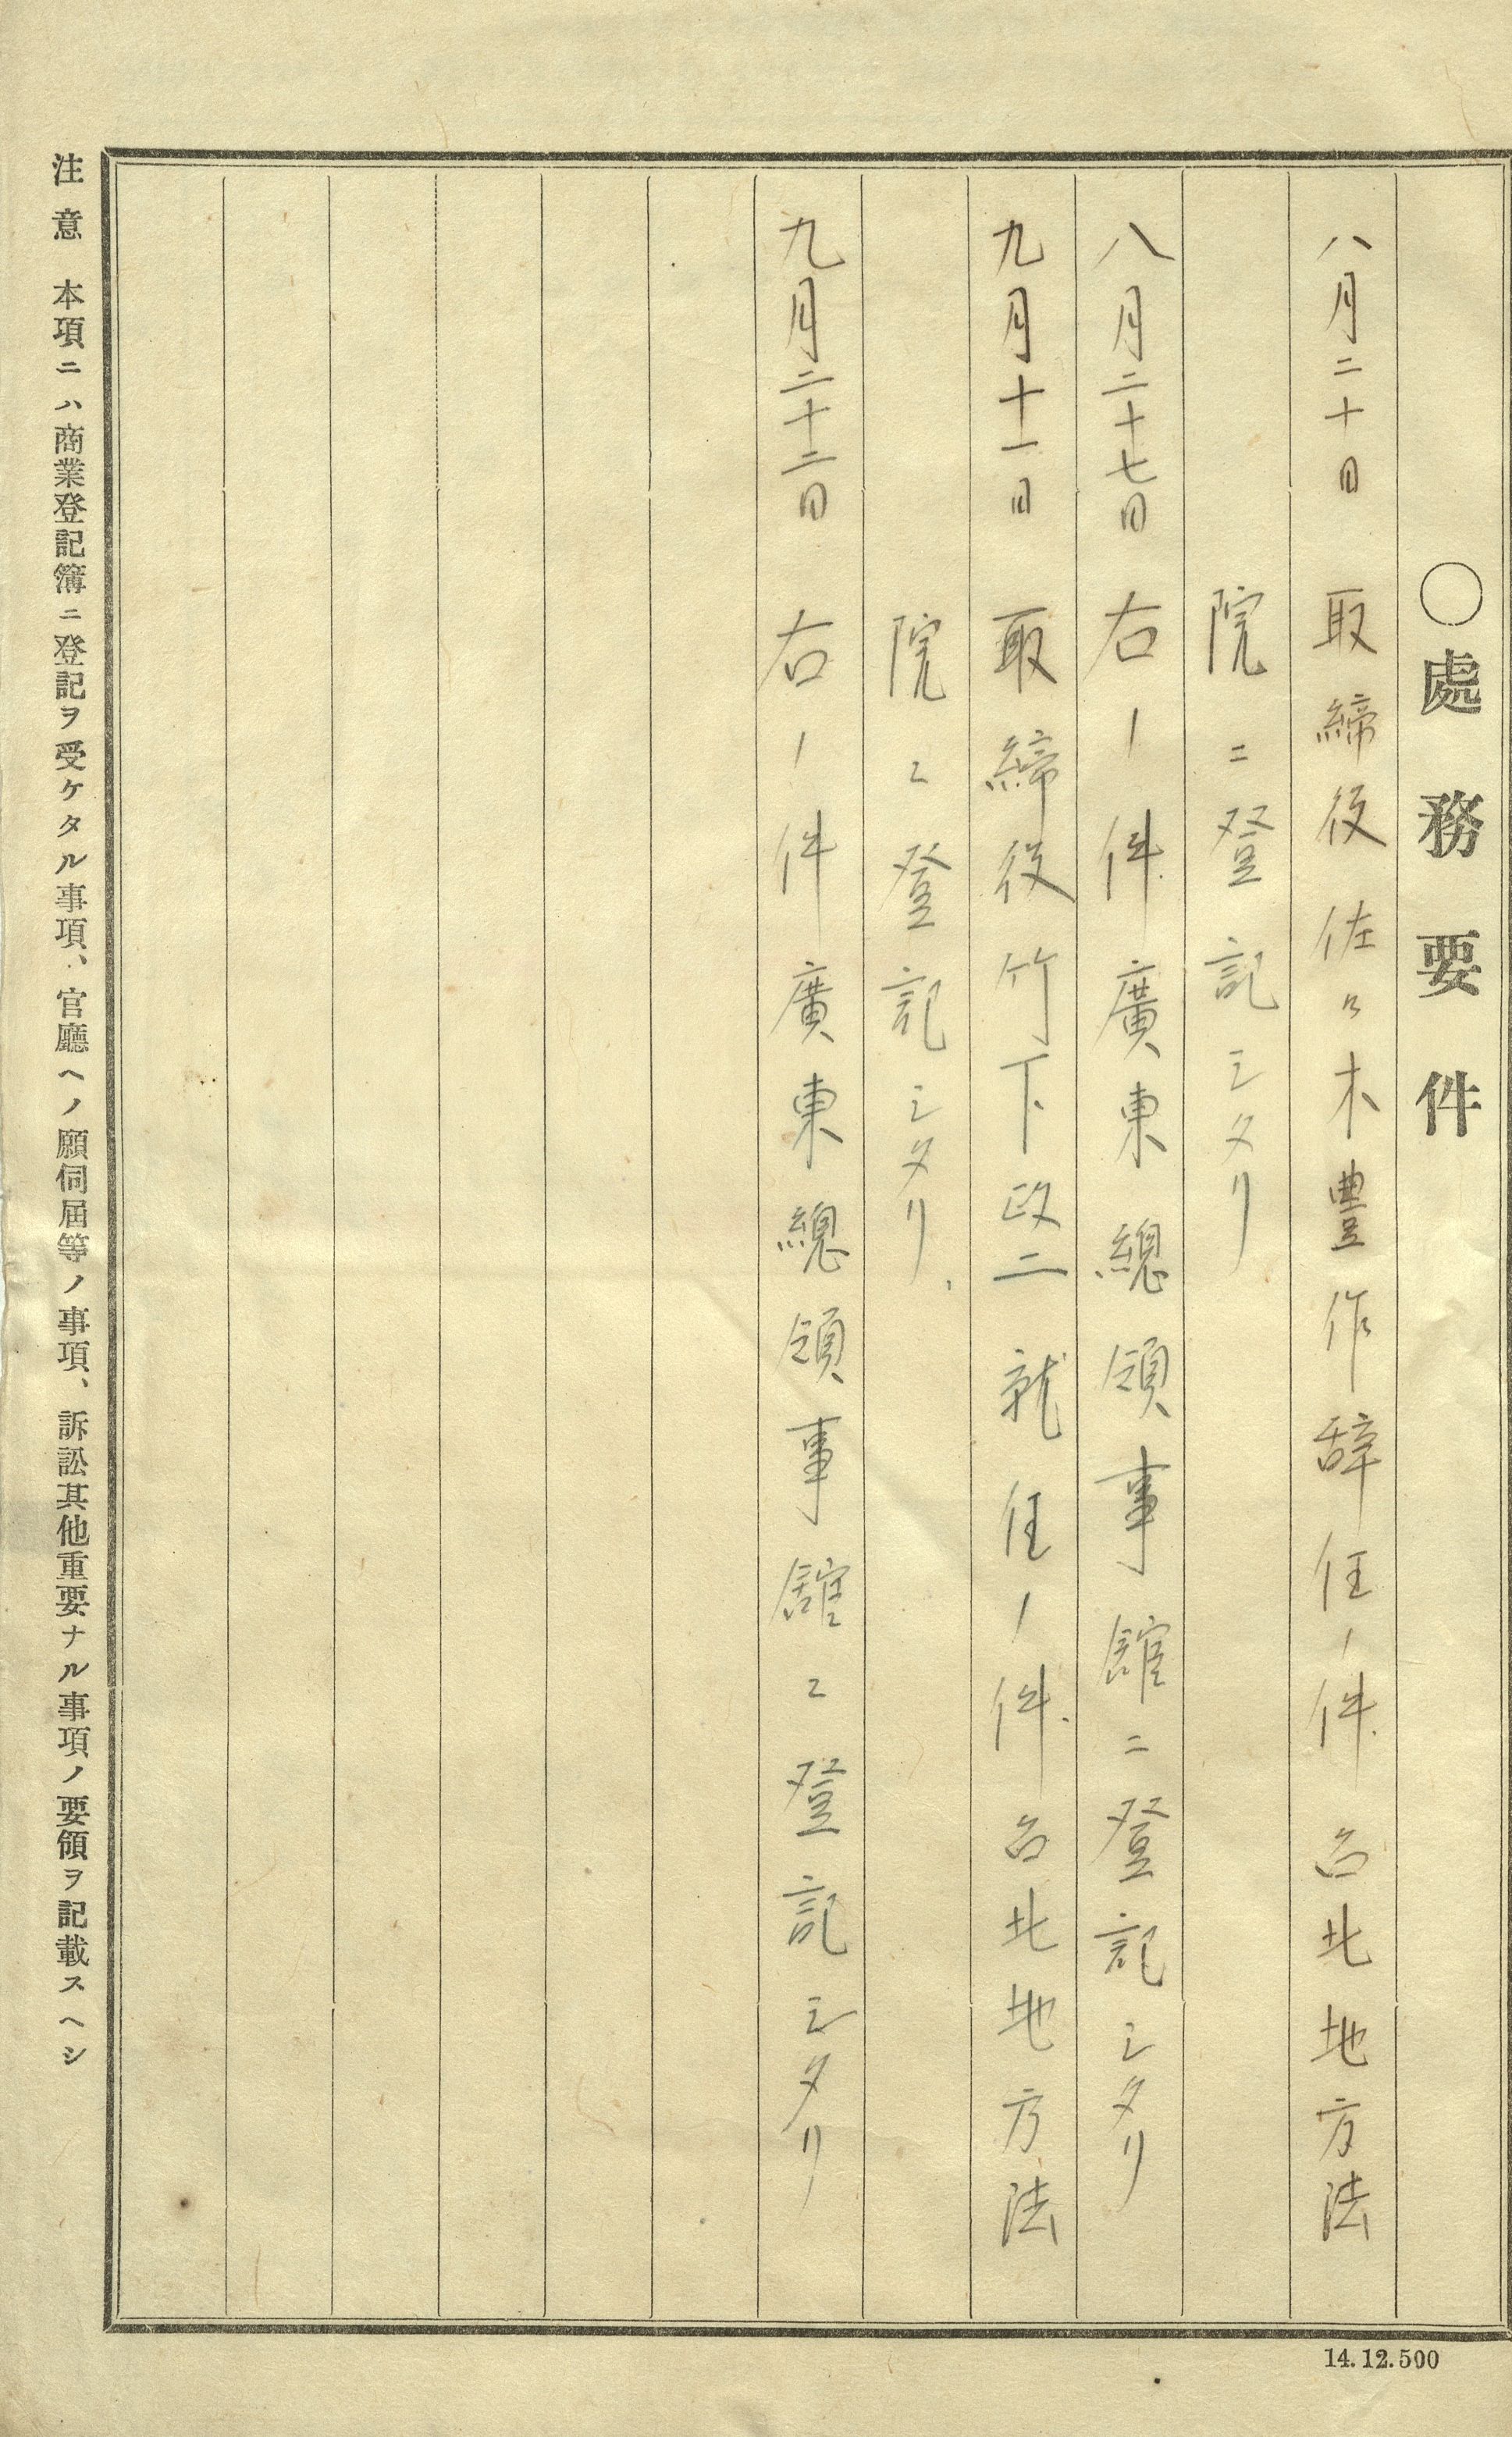 〇處務要件
八月二十日 取締役佐々木豊作辞任ノ件台北地方法
院ニ登記シタリ
八月二十七日 右ノ件廣東總領事館ニ登記シタリ
九月十一日 取締役竹下政二就任ノ件台北地方法
院ニ登記シタリ、
九月二十二日 右ノ件廣東總領事館ニ登記シタリ
注意 本項ニハ商業登記簿ニ登記ヲ受ケタル事項、官廳ヘノ願伺屆等ノ事項、訴訟其他重要ナル事項ノ要領ヲ記載スヘシ
14.12.500